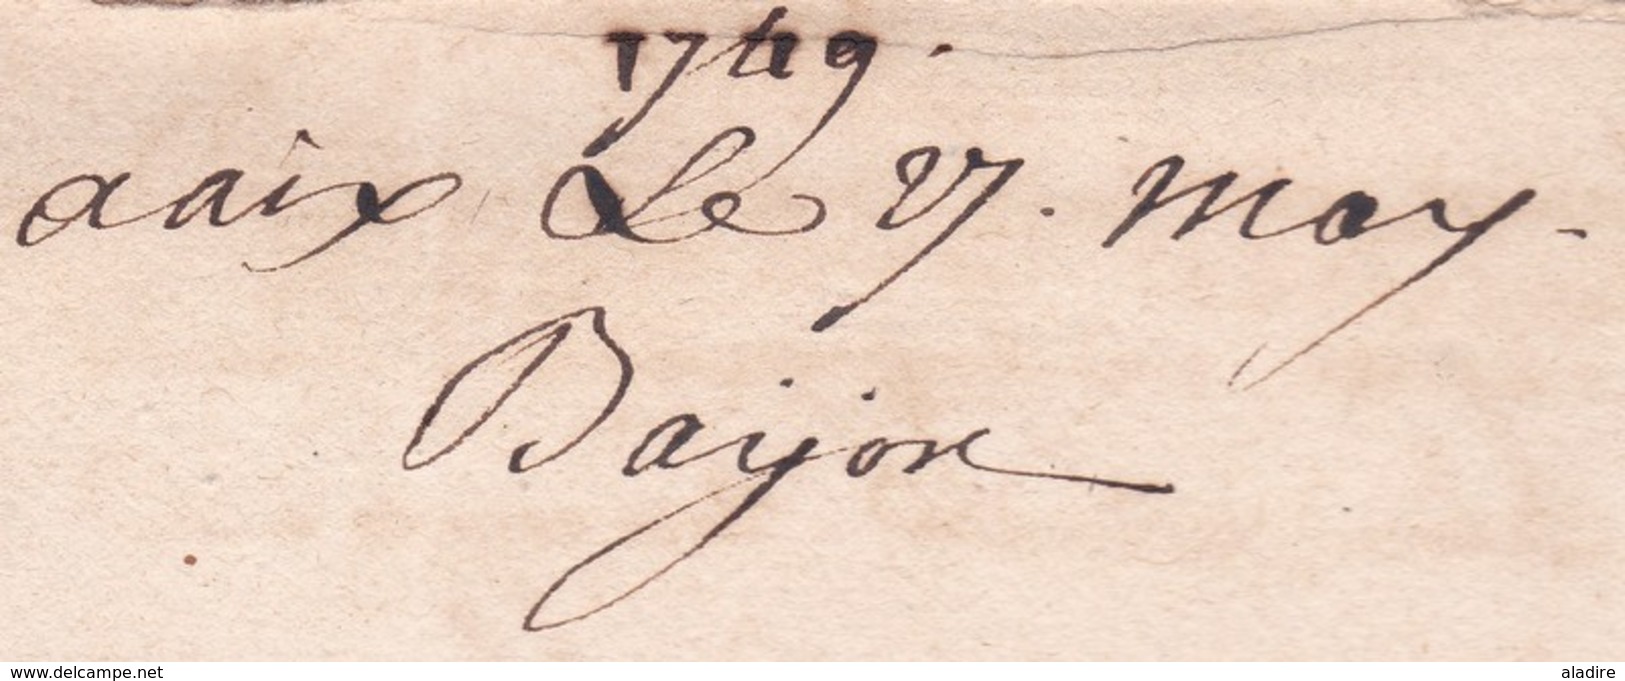 1749.
aaix Le 27. may.
Bayon
delcampe.net
aladire